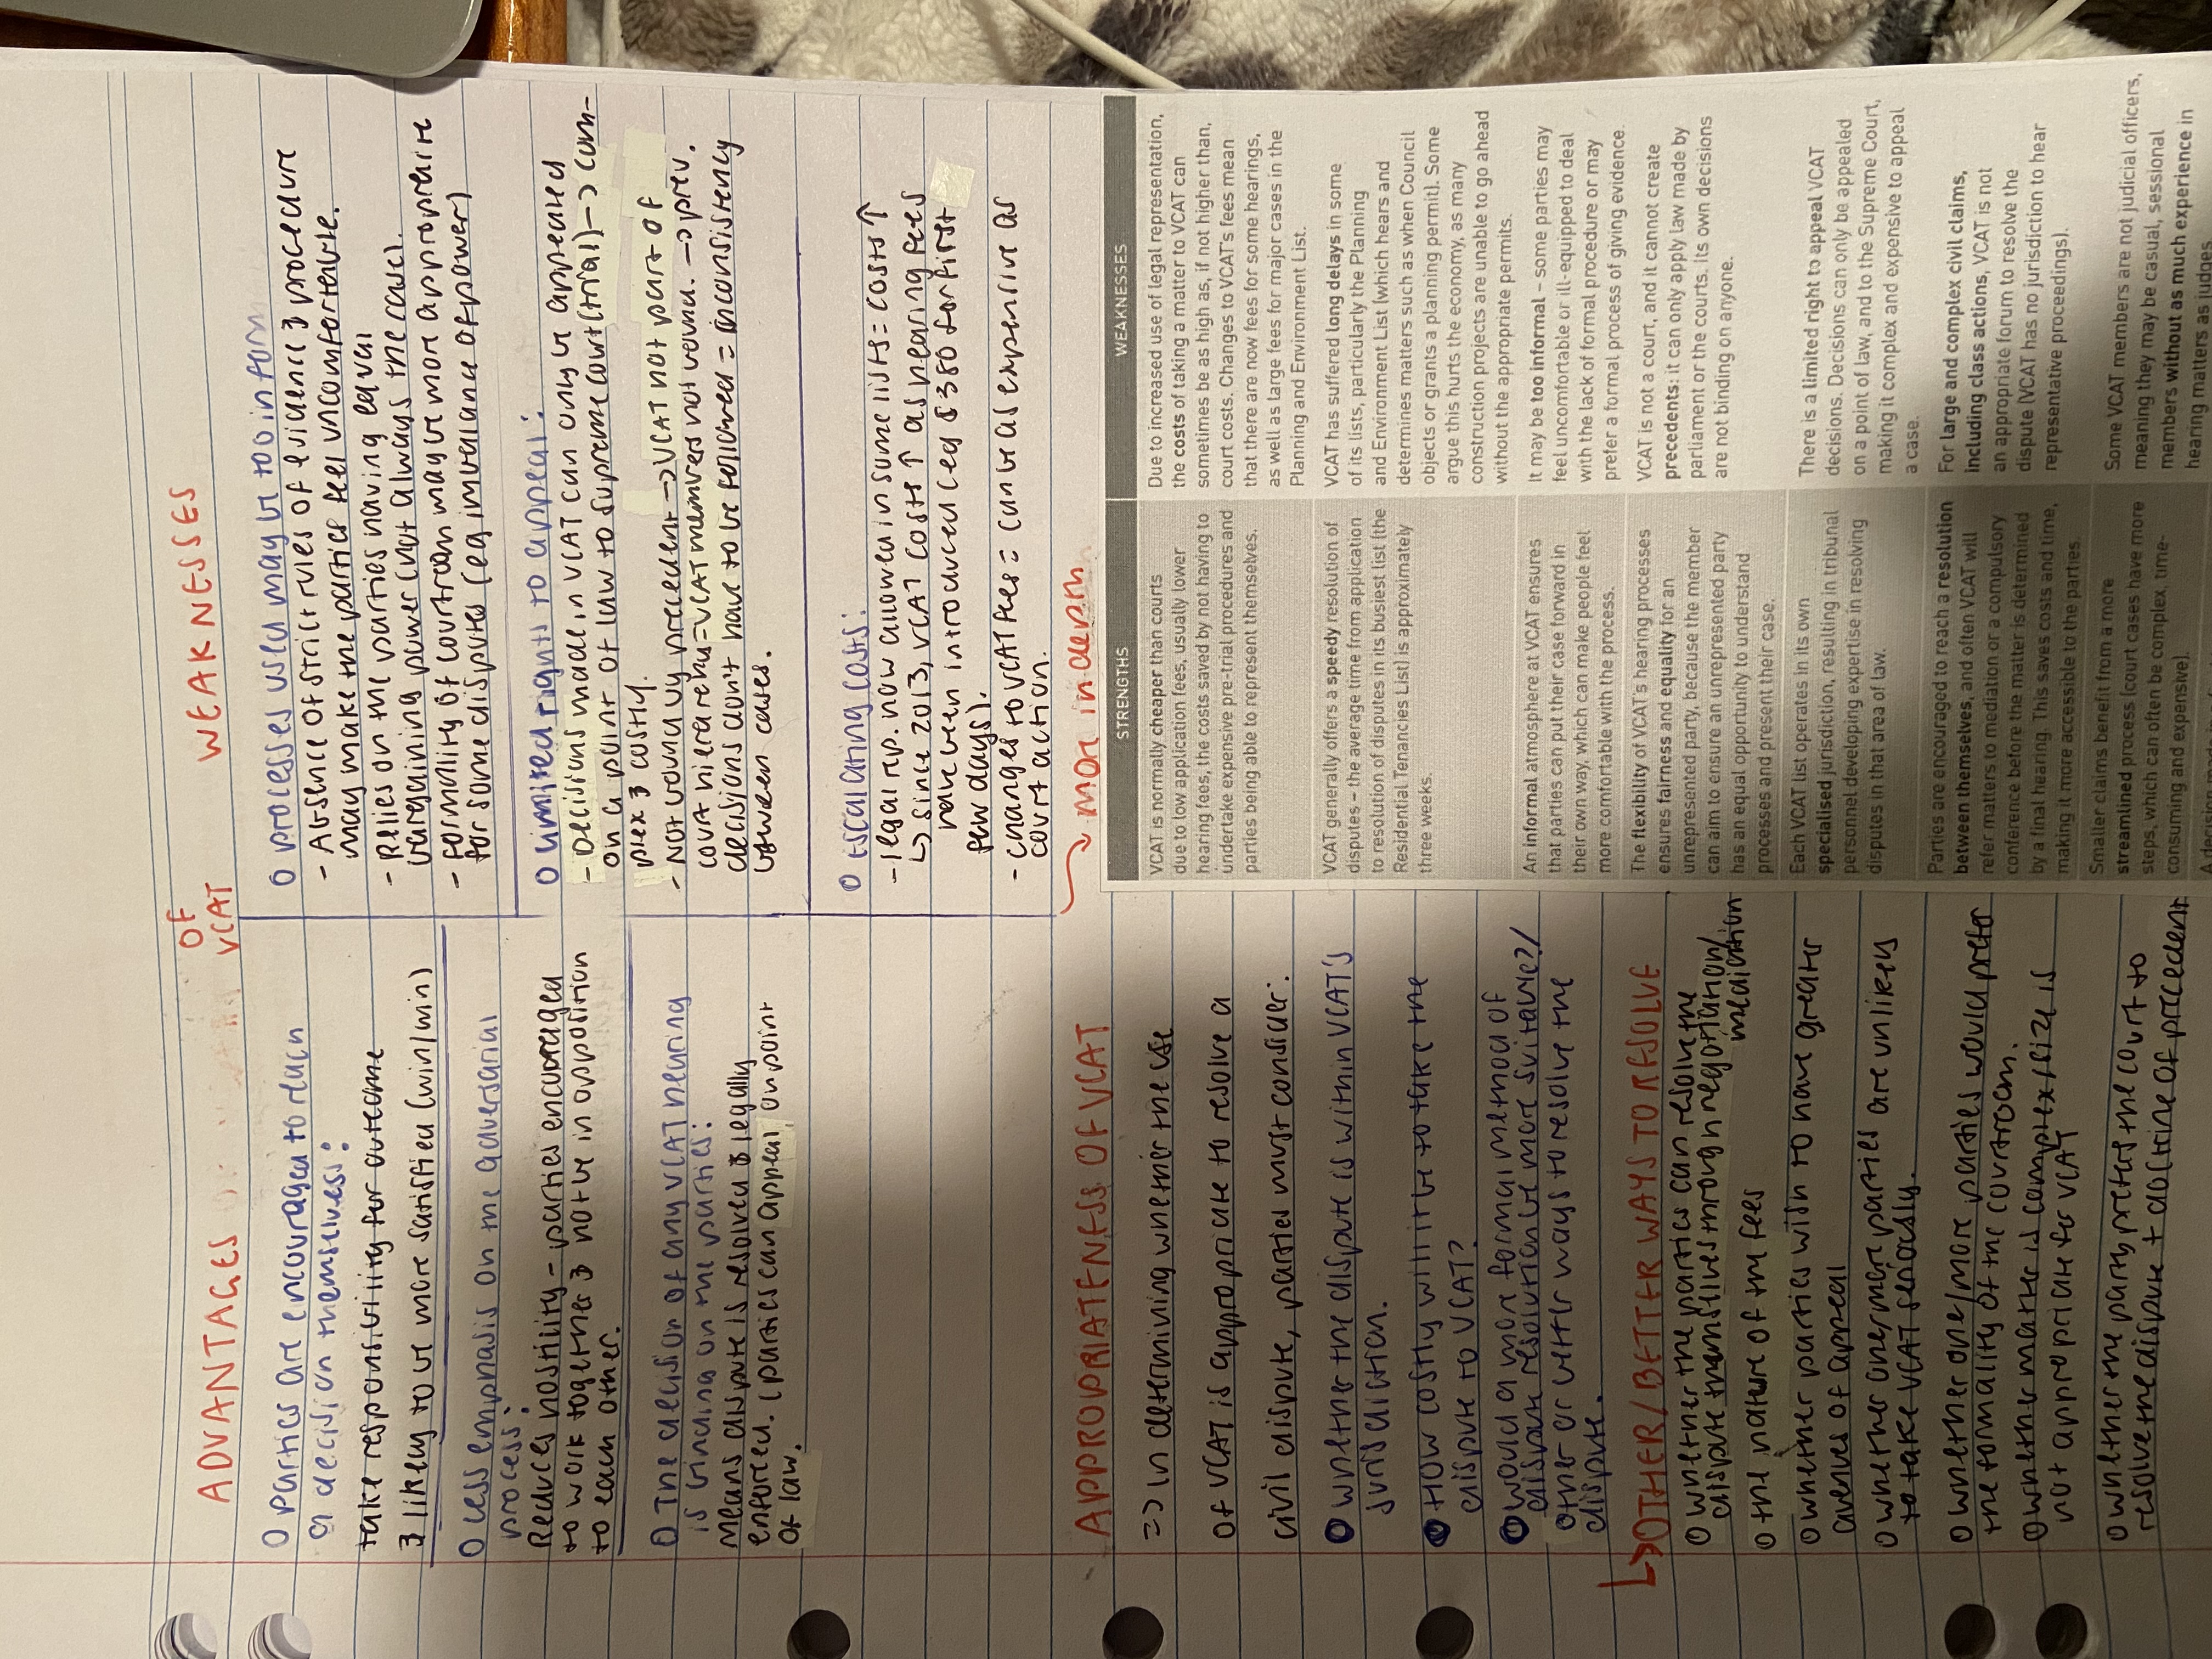 ADVANTAGES
OF
VCAT
WEAKNESSES
O parties are encouraged to reach
a decision themselves:
take responsibility for outcome
& likely to be more satisfied (win/win)
O Less emphasis on the adversarial
process:
Reduces hostility - parties encouraged
to work together & not be in opposition
to each other.
O The decision of any VCAT hearing
is binding on the parties:
Means dispute is resolved & legally
enforced. (parties can appeal on point
of law.
O processes used may be too inform
- Absence of strict rules of evidence & procedure
may make the parties feel uncomfortable.
- Relies on the parties having equal
bargaining power (not always the case).
- Formality of courtroom may be more appropriate
for some disputes (eg imbalance of power)
O Limited rights to appeal:
- Decisions made in VCAT can only be appealed
on a point of law to supreme court (trial) → com-
plex & costly.
- Not bound by precedent → VCAT not part of
court hierarchy = VCAT members not bound. → prev.
decisions don't have to be followed = inconsistency
between cases.
O Escalating costs:
- legal rep. now allowed in some lists = costs ↑
↳ since 2013, VCAT costs ↑ as hearing fees
have been introduced (eg $380 for first
few days).
- changes to VCAT fees = can be as expensive as
court action.
→ more in depth
APPROPRIATENESS OF VCAT
=> In determining whether the use
of VCAT is appropriate to resolve a
civil dispute, parties must consider:
O whether the dispute is within VCAT's
jurisdiction.
O How costly will it be to take the
dispute to VCAT?
O would a more formal method of
dispute resolution be more suitable?/
other or better ways to resolve the
dispute.
↳ OTHER/BETTER WAYS TO RESOLVE
O whether the parties can resolve the
dispute themselves through negotiation/
mediation
O the nature of the fees
O whether parties wish to have greater
avenues of appeal
O whether one/more parties are unlikely
to take VCAT seriously.
O whether one/more parties would prefer
the formality of the courtroom.
O whether matter is complex/size is
not appropriate for VCAT
O whether the party prefers the court to
resolve the dispute + doctrine of precedent
STRENGTHS
WEAKNESSES
VCAT is normally cheaper than courts
due to low application fees, usually lower
hearing fees, the costs saved by not having to
undertake expensive pre-trial procedures and
parties being able to represent themselves.
Due to increased use of legal representation,
the costs of taking a matter to VCAT can
sometimes be as high as, if not higher than,
court costs. Changes to VCAT's fees mean
that there are now fees for some hearings,
as well as large fees for major cases in the
Planning and Environment List.
VCAT generally offers a speedy resolution of
disputes – the average time from application
to resolution of disputes in its busiest list (the
Residential Tenancies List) is approximately
three weeks.
VCAT has suffered long delays in some
of its lists, particularly the Planning
and Environment List (which hears and
determines matters such as when Council
objects or grants a planning permit). Some
argue this hurts the economy, as many
construction projects are unable to go ahead
without the appropriate permits.
An informal atmosphere at VCAT ensures
that parties can put their case forward in
their own way, which can make people feel
more comfortable with the process.
It may be too informal – some parties may
feel uncomfortable or ill-equipped to deal
with the lack of formal procedure or may
prefer a formal process of giving evidence.
The flexibility of VCAT's hearing processes
ensures fairness and equality for an
unrepresented party, because the member
can aim to ensure an unrepresented party
has an equal opportunity to understand
processes and present their case.
VCAT is not a court, and it cannot create
precedents: it can only apply law made by
parliament or the courts. Its own decisions
are not binding on anyone.
Each VCAT list operates in its own
specialised jurisdiction, resulting in tribunal
personnel developing expertise in resolving
disputes in that area of law.
There is a limited right to appeal VCAT
decisions. Decisions can only be appealed
on a point of law, and to the Supreme Court,
making it complex and expensive to appeal
a case.
Parties are encouraged to reach a resolution
between themselves, and often VCAT will
refer matters to mediation or a compulsory
conference before the matter is determined
by a final hearing. This saves costs and time,
making it more accessible to the parties.
For large and complex civil claims,
including class actions, VCAT is not
an appropriate forum to resolve the
dispute (VCAT has no jurisdiction to hear
representative proceedings).
Smaller claims benefit from a more
streamlined process (court cases have more
steps, which can often be complex, time-
consuming and expensive).
Some VCAT members are not judicial officers,
meaning they may be casual, sessional
members without as much experience in
hearing matters as judges.